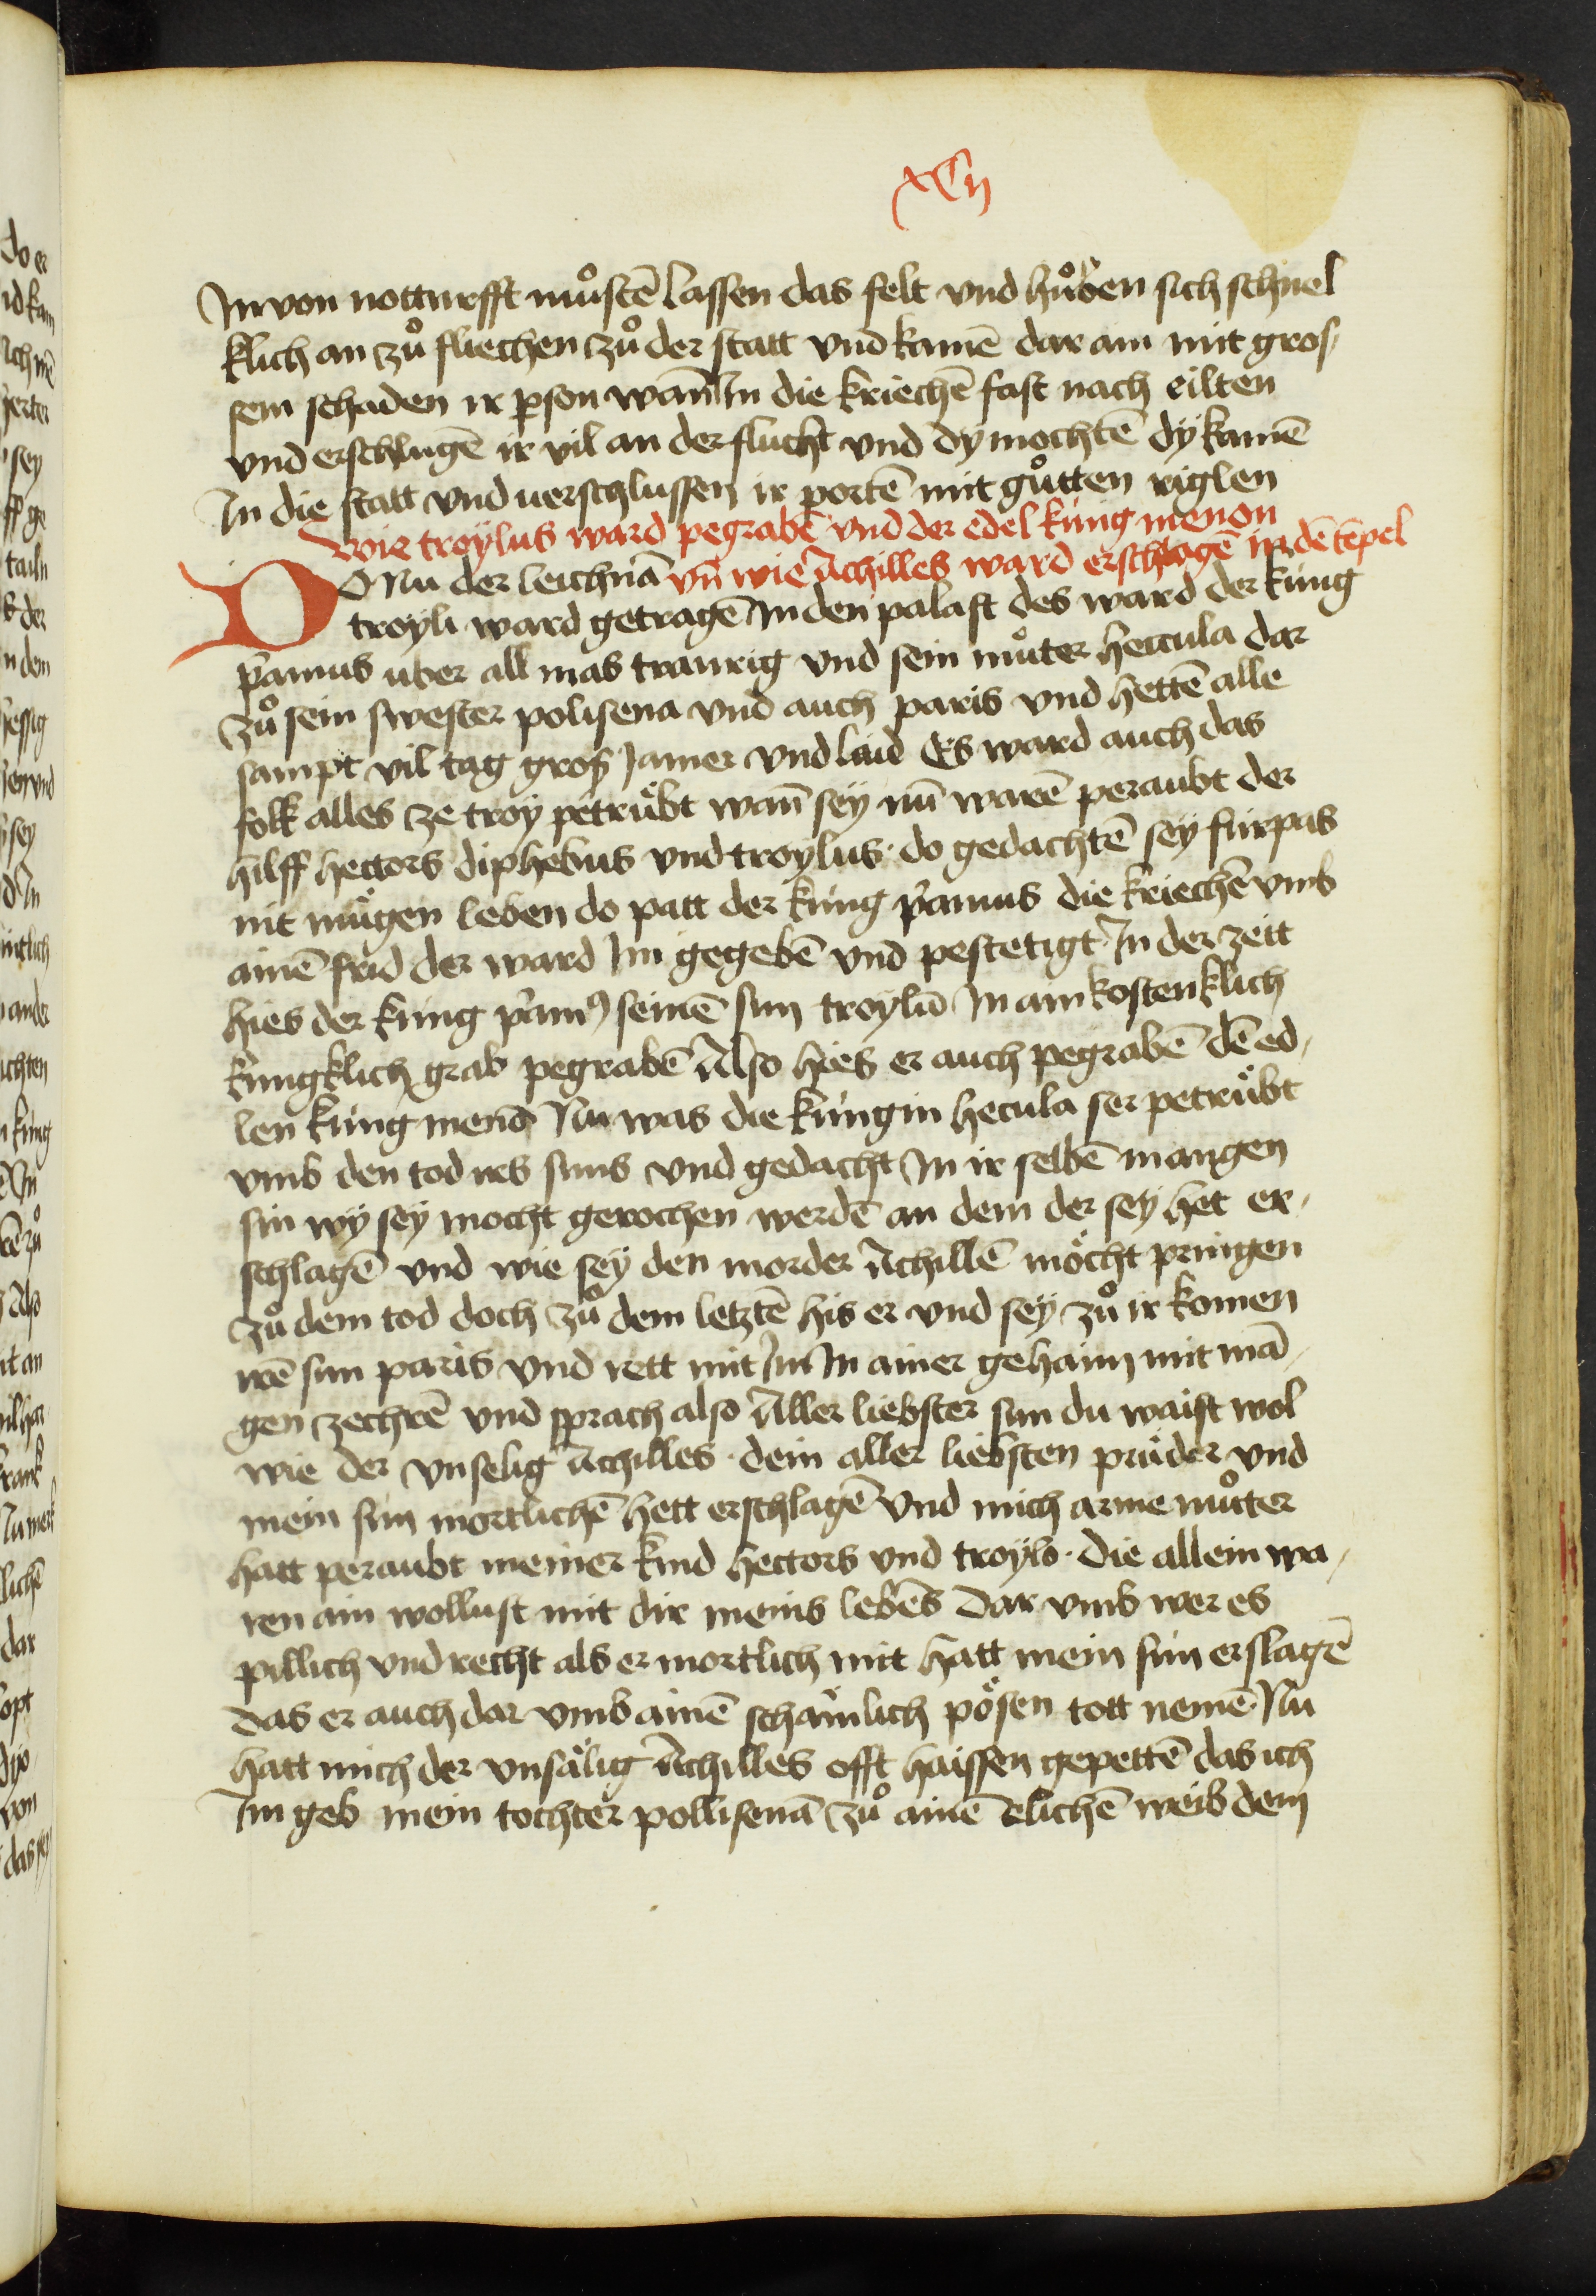 xCij
In von notturfft mu̇sten̄ lassen das felt vnd hůben sich schnel
klich an zů fliechen zů der statt vnd kamē dar am mit gros/
sem schaden ir pson wan̄ In die kriechē fast nach eilten
vnd erschlugē ir vil an der flucht vnd dy mochtē dy kamē
In die statt vnd uerschlussen ir portē mit gůtten riglen
wie troylus ward pegrabē vnd der edel kúng menon
vn̄ wie Achilles ward erschlagē in dē tēpel
DO Nu der leichnā
troyli ward getragē In den palast des ward der kúng
pamus uber all mas traurig vnd sein můter heccula dar
zů sein swester polisena vnd auch paris vnd hettē alle
sampt vil tag gros Jamer vnd laid Es ward auch das
folk alles ze troy petrúbt wan̄ sey nū warē peraubt der
hilff hectors diphebus vnd troylus · do gedachtē sey fúrpas
nit múgen leben do patt der kúng pamus die kriechē vmb
ainē frid der ward Im gegebē vnd pestetigt · In der zeitt
hies der kúng pamꝰ seinē sun troylū In ain kostenklich
kúngklich grab pegrabē Also hies er auch pegrabē dē ed/
len kúng menō Nu was die kúngin hecula ser petrúbt
vmb den tod irs suns vnd gedacht In ir selbē mangen
sin wy sey mocht gerochen werdē an dem der sey het er/
schlagē vnd wie sey den morder Achillē möcht pringen
zů dem tod doch zů dem letztē his er vnd sey zů ir komen
irē sun paris vnd rett mit Im In ainer gehaim mit mā/
gen zechrē vnd sprach also Aller liebster sun du waist wol
wie der vnselig Achilles · dein aller liebsten prúder vnd
mein sun mortlichē hett erschlagē vnd mich arme můter
hatt peraubt meiner kind hectors vnd troylo · die allein wa/
ren ain wollust mit dir meins lebēs Dar vmb wer es
pillich vnd recht als er mortlich mit hatt mein sún erslagē
das er auch dar vmb ainē schämlich pösen tott nemē · Nu
hatt mich der vnsälig Achilles offt haissen gepettē das ich
Im geb mein tochter pollisenā zů ainē elichē weib dem